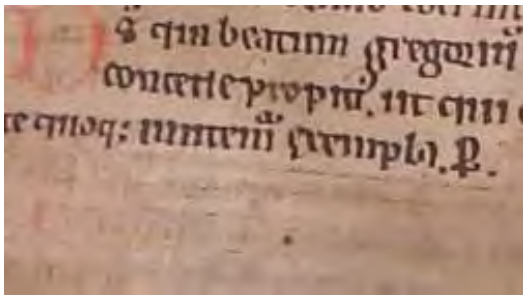 Ds̄ qui beatum gregoriū
concede propitiꝰ. ut qui
quoq; imitem̄ exemplo. P.